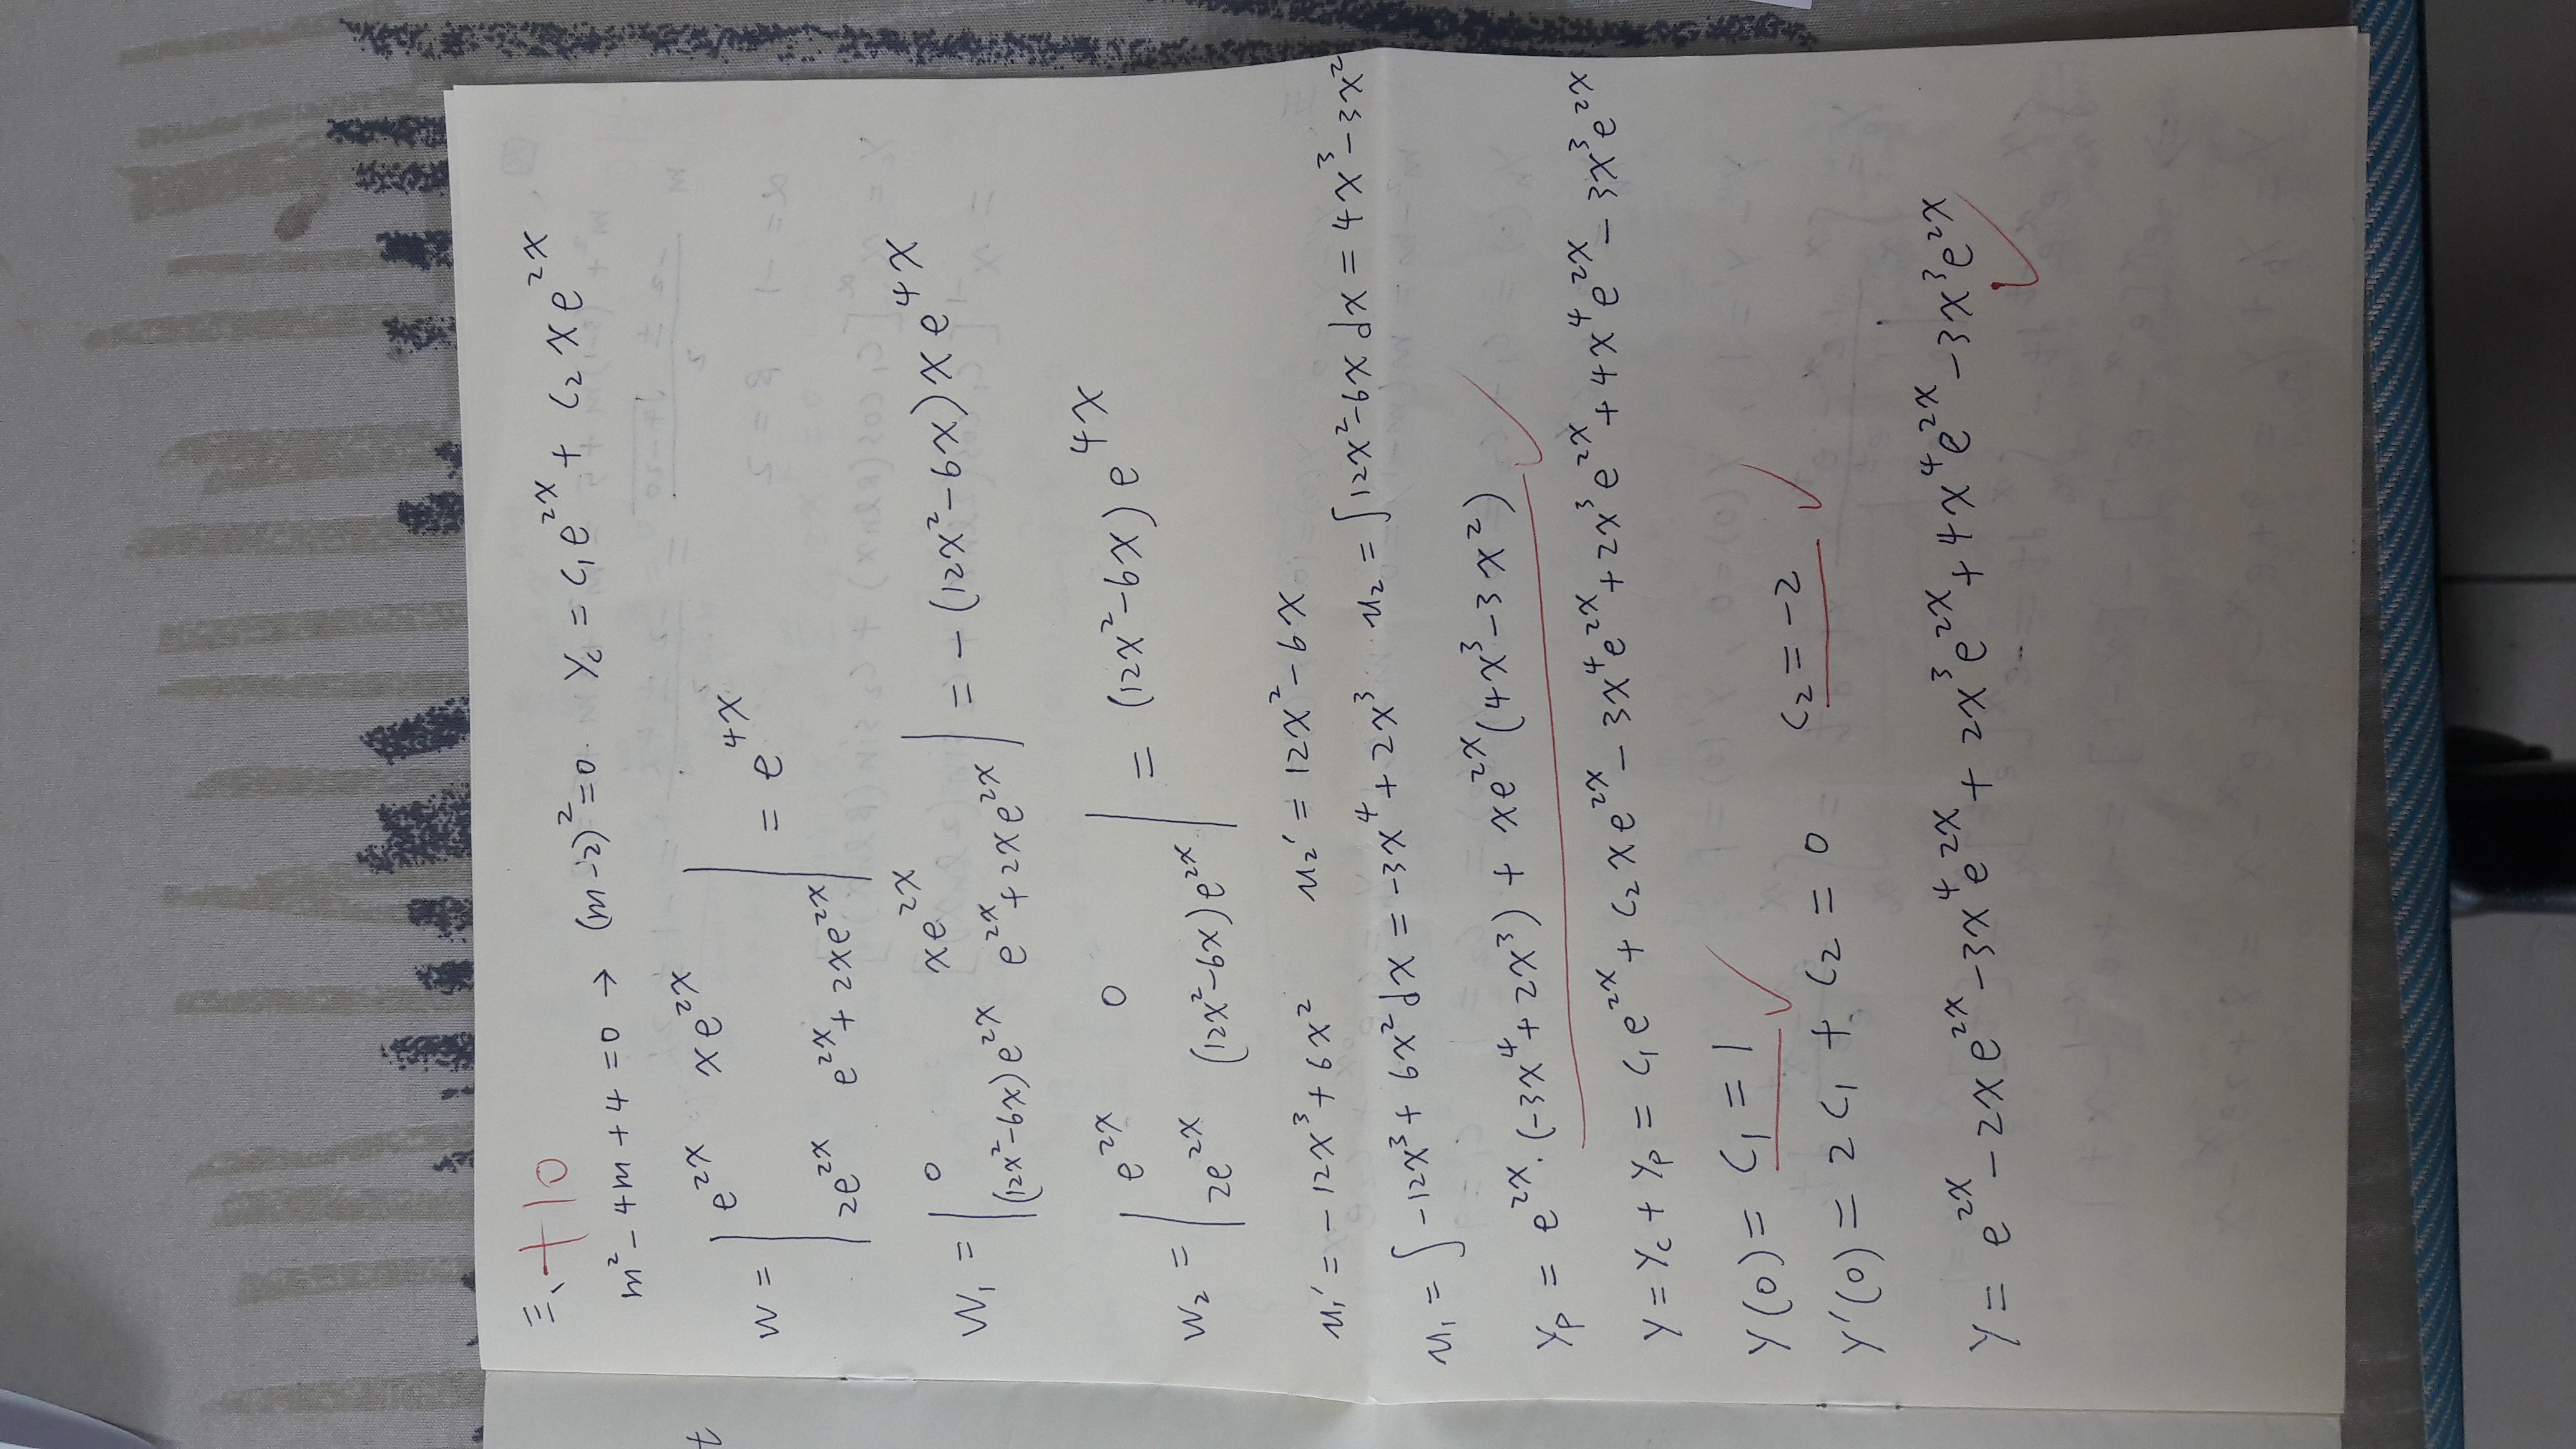 三、+10
m² - 4m + 4 = 0 → (m-2)² = 0. Yc = C₁e^{2x} + C₂xe^{2x}
W = | e^{2x} xe^{2x} |
| 2e^{2x} e^{2x} + 2xe^{2x} | = e^{4x}
W₁ = | 0 xe^{2x} |
| (12x²-6x)e^{2x} e^{2x} + 2xe^{2x} | = -(12x²-6x)xe^{4x}
W₂ = | e^{2x} 0 |
| 2e^{2x} (12x²-6x)e^{2x} | = (12x²-6x)e^{4x}
u₁' = -12x³ + 6x² u₂' = 12x² - 6x
u₁ = ∫ -12x³ + 6x² dx = -3x⁴ + 2x³ u₂ = ∫12x²-6x dx = 4x³ - 3x²
Yp = e^{2x}·(-3x⁴ + 2x³) + xe^{2x}(4x³ - 3x²) ✓
Y = Yc + Yp = C₁e^{2x} + C₂xe^{2x} - 3x⁴e^{2x} + 2x³e^{2x} + 4x⁴e^{2x} - 3x³e^{2x}
Y(0) = C₁ = 1 ✓
Y'(0) = 2C₁ + C₂ = 0 C₂ = -2 ✓
Y = e^{2x} - 2xe^{2x} - 3x⁴e^{2x} + 2x³e^{2x} + 4x⁴e^{2x} - 3x³e^{2x} ✓
t